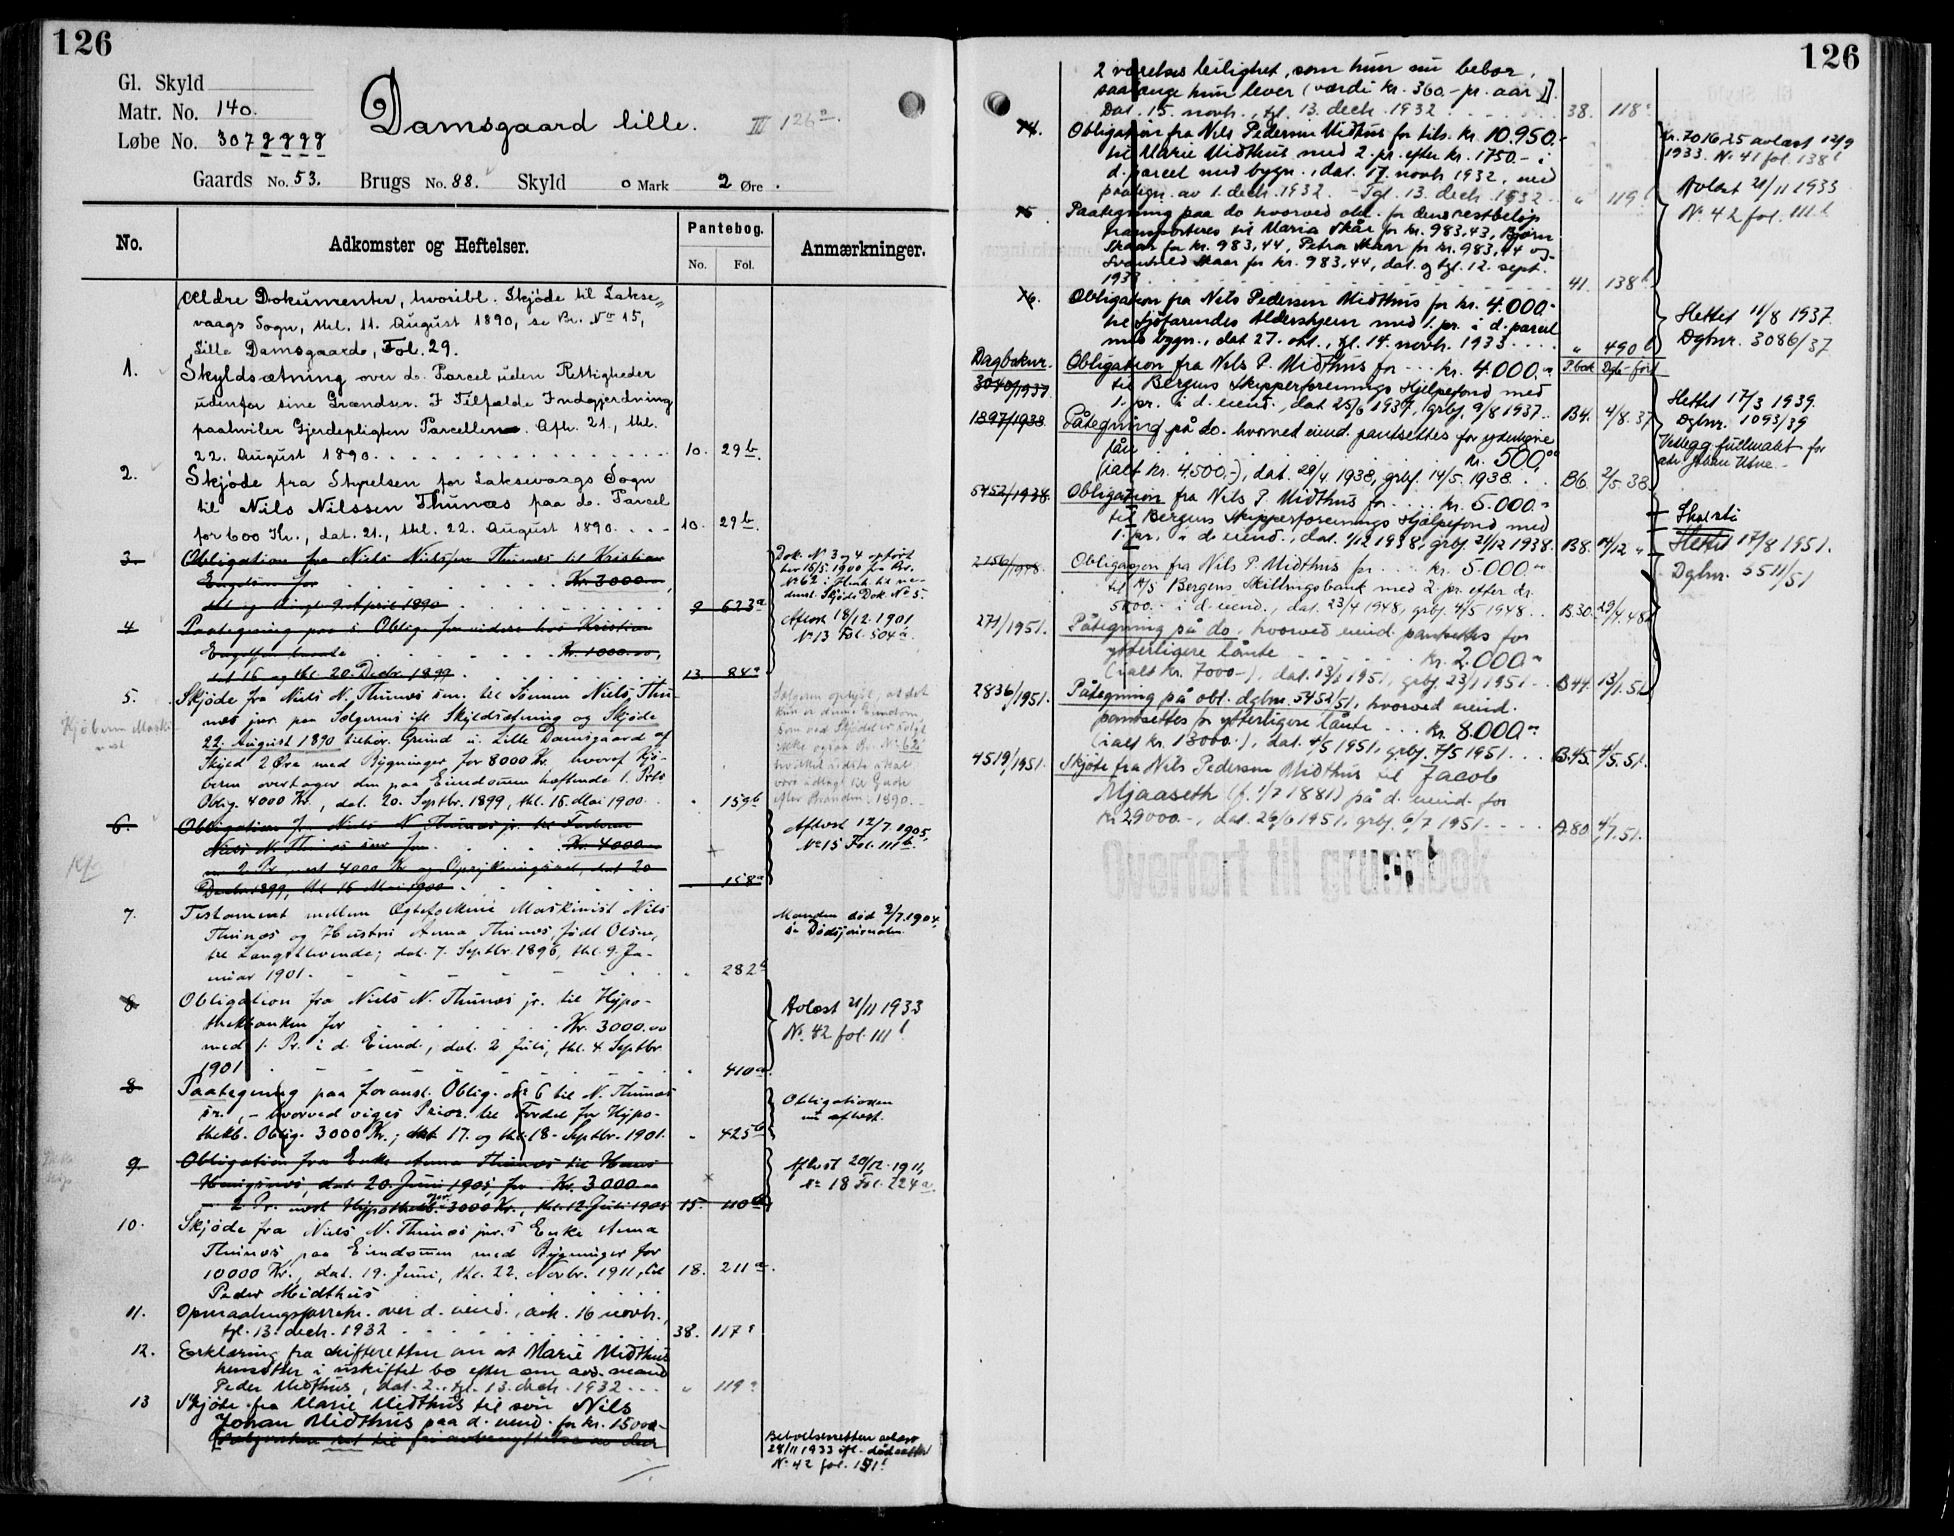 126
Gl. Skyld
Matr. No. 140.
Løbe No. 307qqqqq
Damsgaard lille.
III 126a.
Gaards No. 53. Brugs No. 88. Skyld 0 Mark 2 Øre.
No. Adkomster og Heftelser. Pantebog. No. Fol. Anmærkninger.
Ældre Dokumenter, hvoribl. Skjøde til Lakse-
vaags Sogn, thl. 11. August 1890, se Br. No 15,
Lille Damsgaard, Fol. 29.
1. Skyldsætning over d. Parcel uden Rettigheder
udenfor sine Grændser. I Tilfælde Indgjerdning
paahviler Gjerdepligten Parcellen. Afh. 21., thl.
22. August 1890. 10. 29b.
2. Skjøde fra Styrelsen for Laksevaags Sogn
til Nils Nilssen Thunæs paa d. Parcel
for 600 Kr., dat. 21., thl. 22. August 1890. 10. 29b.
3. Obligation fra Niels Nielssen Thunæs til Kristian
Engelsen for Kr. 3000
dat. og thingl. 9 April 1890 9 623a
Dok. No 3 og 4 opført
her 15/5. 1900 fra Br.
No 62
Skjøde Dok No 5.
Aflæst 18/12. 1901
No 13 Fol. 504a.
4 Paategning paa s. Oblig. for videre hos Kristian
Engelsen laante Kr. 1000.00,
dat 15 og thl. 20. Decbr. 1899 13 84a
5. Skjøde fra Niels N. Thunæs sen. til Sønnen Niels Thu-
næs jnr. paa Sælgerens ifl. Skyldsætning og Skjøde
22. August 1890 tilhør. Grund u. Lille Damsgaard af
Skyld 2 Øre med Bygninger for 8000 Kr. hvoraf Kjø-
beren overtager den paa Eiendommen heftende 1. Prts
Oblig. 4000 Kr., dat. 20. Septbr. 1899, thl. 15. Mai 1900. " 159b
Kjøberen Maski-
nist
Sælgeren oplyst, at det
kun er denne Eiendom,
som ved Skjødet er solgt,
ikke ogsaa Br. No 62
være udlagt til Gade
efter Branden 1890.
6. Obligation fra Niels N Thunæs jr. til Faderen
Niels N. Thunæs snr for Kr. 4000
m 2 Pr. næst 4000 Kr og Oprykningsret, dat 20
Decbr 1899, thl 15 Mai 1900 158a
Aflæst 12/7. 1905,
No 15 Fol. 111b.
7. Testament mellem Ægtefolkene Maskinist Niels
Thunæs og Hustru Anna Thunæs, født Olsen,
til Længstlevende; dat. 7. Septbr. 1896, thl. 9. Ja-
nuar 1901. " 282b
Manden død 2/7. 1904,
se Dødsjournalen.
8 Obligation fra Niels N. Thunæs jr. til Hypo-
thekbanken for Kr. 3000.00
med 1. Pr. i d. Eiend., dat. 2 Juli, thl. 4. Septbr
1901 " 410a
Avlæst 21/11 1933
No. 42 fol. 111b
8 Paategning paa foranst. Oblig. No 6 til N. Thunæs
sr., – hvorved viges Prior. til Fordel for Hypo-
thekb. Oblig. 3000 Kr.; dat 17. og thl. 18. Septbr. 1901. " 425b
Obligationen
nu aflæst.
9. Obligation fra Enke Anna Thunæs til Hans
Haugsnæs, dat 20. Juni 1905, for Kr. 3000.00
2 Pr. næst Hypothekb. 3000 Kr., thl. 12 Juli 1905 15. 110b
Aflæst 20/12. 1911,
No 18 Fol. 224a.
10. Skjøde fra Niels N. Thunæs jnr.s Enke Anna
Thunæs paa Eiendommen med Bygninger for
10000 Kr., dat. 19. Juni, thl. 22. Novbr. 1911, til 18. 211a.
Peder Midthus
11. Opmaalingsforretn. over d. eiend., avh. 16 novbr.,
tgl. 13. decb. 1932 38. 117a
12. Erklæring fra skifteretten om at Marie Midthus
hensitter i uskiftet bo efter sin avd. mand
Peder Midthus, dat. 2., tgl. 13. decb. 1932 " 119a
13 Skjøte fra Marie Midthus til søn Nils
Johan Midthus paa d. eiend. for kr. 15000.-
[Sælgersken ret til fri avbenyttelse av den
Beboelsesretten avlæst
28/11 1933 ifl. dødsattest
No 42 fol. 151b
126
2 værelses leilighet, som hun nu bebor,
saalænge hun lever (værdi kr. 360.- pr. aar)].
Dat. 15. novb., tgl. 13. decb. 1932 38. 118a
14. Obligation fra Nils Pedersen Midthus for tils. kr. 10.950.-
til Marie Midthus med 2. pr. efter kr. 1750.- i
d. parcel med bygn., dat. 17. novb 1932, med
paategn. av 1. decb. 1932. - Tgl. 13. decb. 1932. " 119b
Kr. 7016.25 avlæst 12/9
1933. No 41 fol. 138b
Avlæst 21/11 1933
No. 42 fol. 111b
15 Paategning paa do hvorved obl. for dens restbeløp
transporteres til Maria Skår for kr. 983,43, Bjørn
Skaar for kr. 983,44, Petra Skaar for kr. 983,44 og
Svanhild Skaar for kr. 983,44, dat. og tgl. 12. sept.
1933 41. 138b
16. Obligation fra Nils Pedersen Midthus for kr. 4.000.-
til Sjøfarendes Aldershjem med 1. pr. i d. parcel
med bygn., dat 27. okt., tgl. 14. novb. 1933 " 490b
Slettet 11/8 1937.
Dgbnr. 3086/37
Dagboknr. P.bok Dgb-ført
3040/1937 Obligation fra Nils P. Midthus for kr. 4.000.-
til Bergens Skipperforenings Hjelpefond med
1. pr. i d. eiend., dat 25/6 1937, grbf. 9/8 1937. B4. 4/8. 37
Slettet 17/3 1939.
Dgbnr. 1093/39
Vedlegg fullmakt for
1897/1938 Påtegning på do. hvorved eiend. pantsettes for ytterligere
lån kr. 500.00
(ialt kr. 4500.-), dat. 29/4 1938, grbf. 14/5. 1938. B6. 2/5. 38.
5452/1938 Obligation fra Nils P. Midthus for kr. 5.000.-
til Bergens Skipperforenings Hjelpefond med
1. pr. i d. eiend., dat. 1/12 1938, grbf. 21/12 1938. B8. 14/12 "
Skal stå
Slettet 17/8 1951.
Dgbnr. 5511/51
2156/1948 Obligasjon fra Nils P. Midthus for kr. 5.000.-
til A/S Bergens Skillingsbank med 2. pr. efter kr.
5000.- i d. eiend., dat. 23/4 1948, grbf. 4/5 1948. B30. 29/4. 48
271/1951. Påtegning på do. hvorved eiend. pantsettes for
ytterligere lånte kr. 2.000.-
(ialt kr. 7000.-), dat. 13/1 1951, grbf. 23/1 1951. B44. 13/1. 51
2836/1951. Påtegning på obl. dgbnr. 5452/51, hvorved eiend.
pantsettes for ytterligere lånte kr. 8.000.-
(ialt kr. 13000.-), dat. 4/5 1951, grbf. 7/5 1951. B45. 4/5. 51.
4519/1951. Skjøte fra Nils Pedersen Midthus til Jacob
Mjaaseth (f. 1/7 1881) på d. eiend. for
kr 29000.-, dat. 26/6 1951, grbf. 6/7 1951. A80 4/7. 51.
Overført til grunnbok